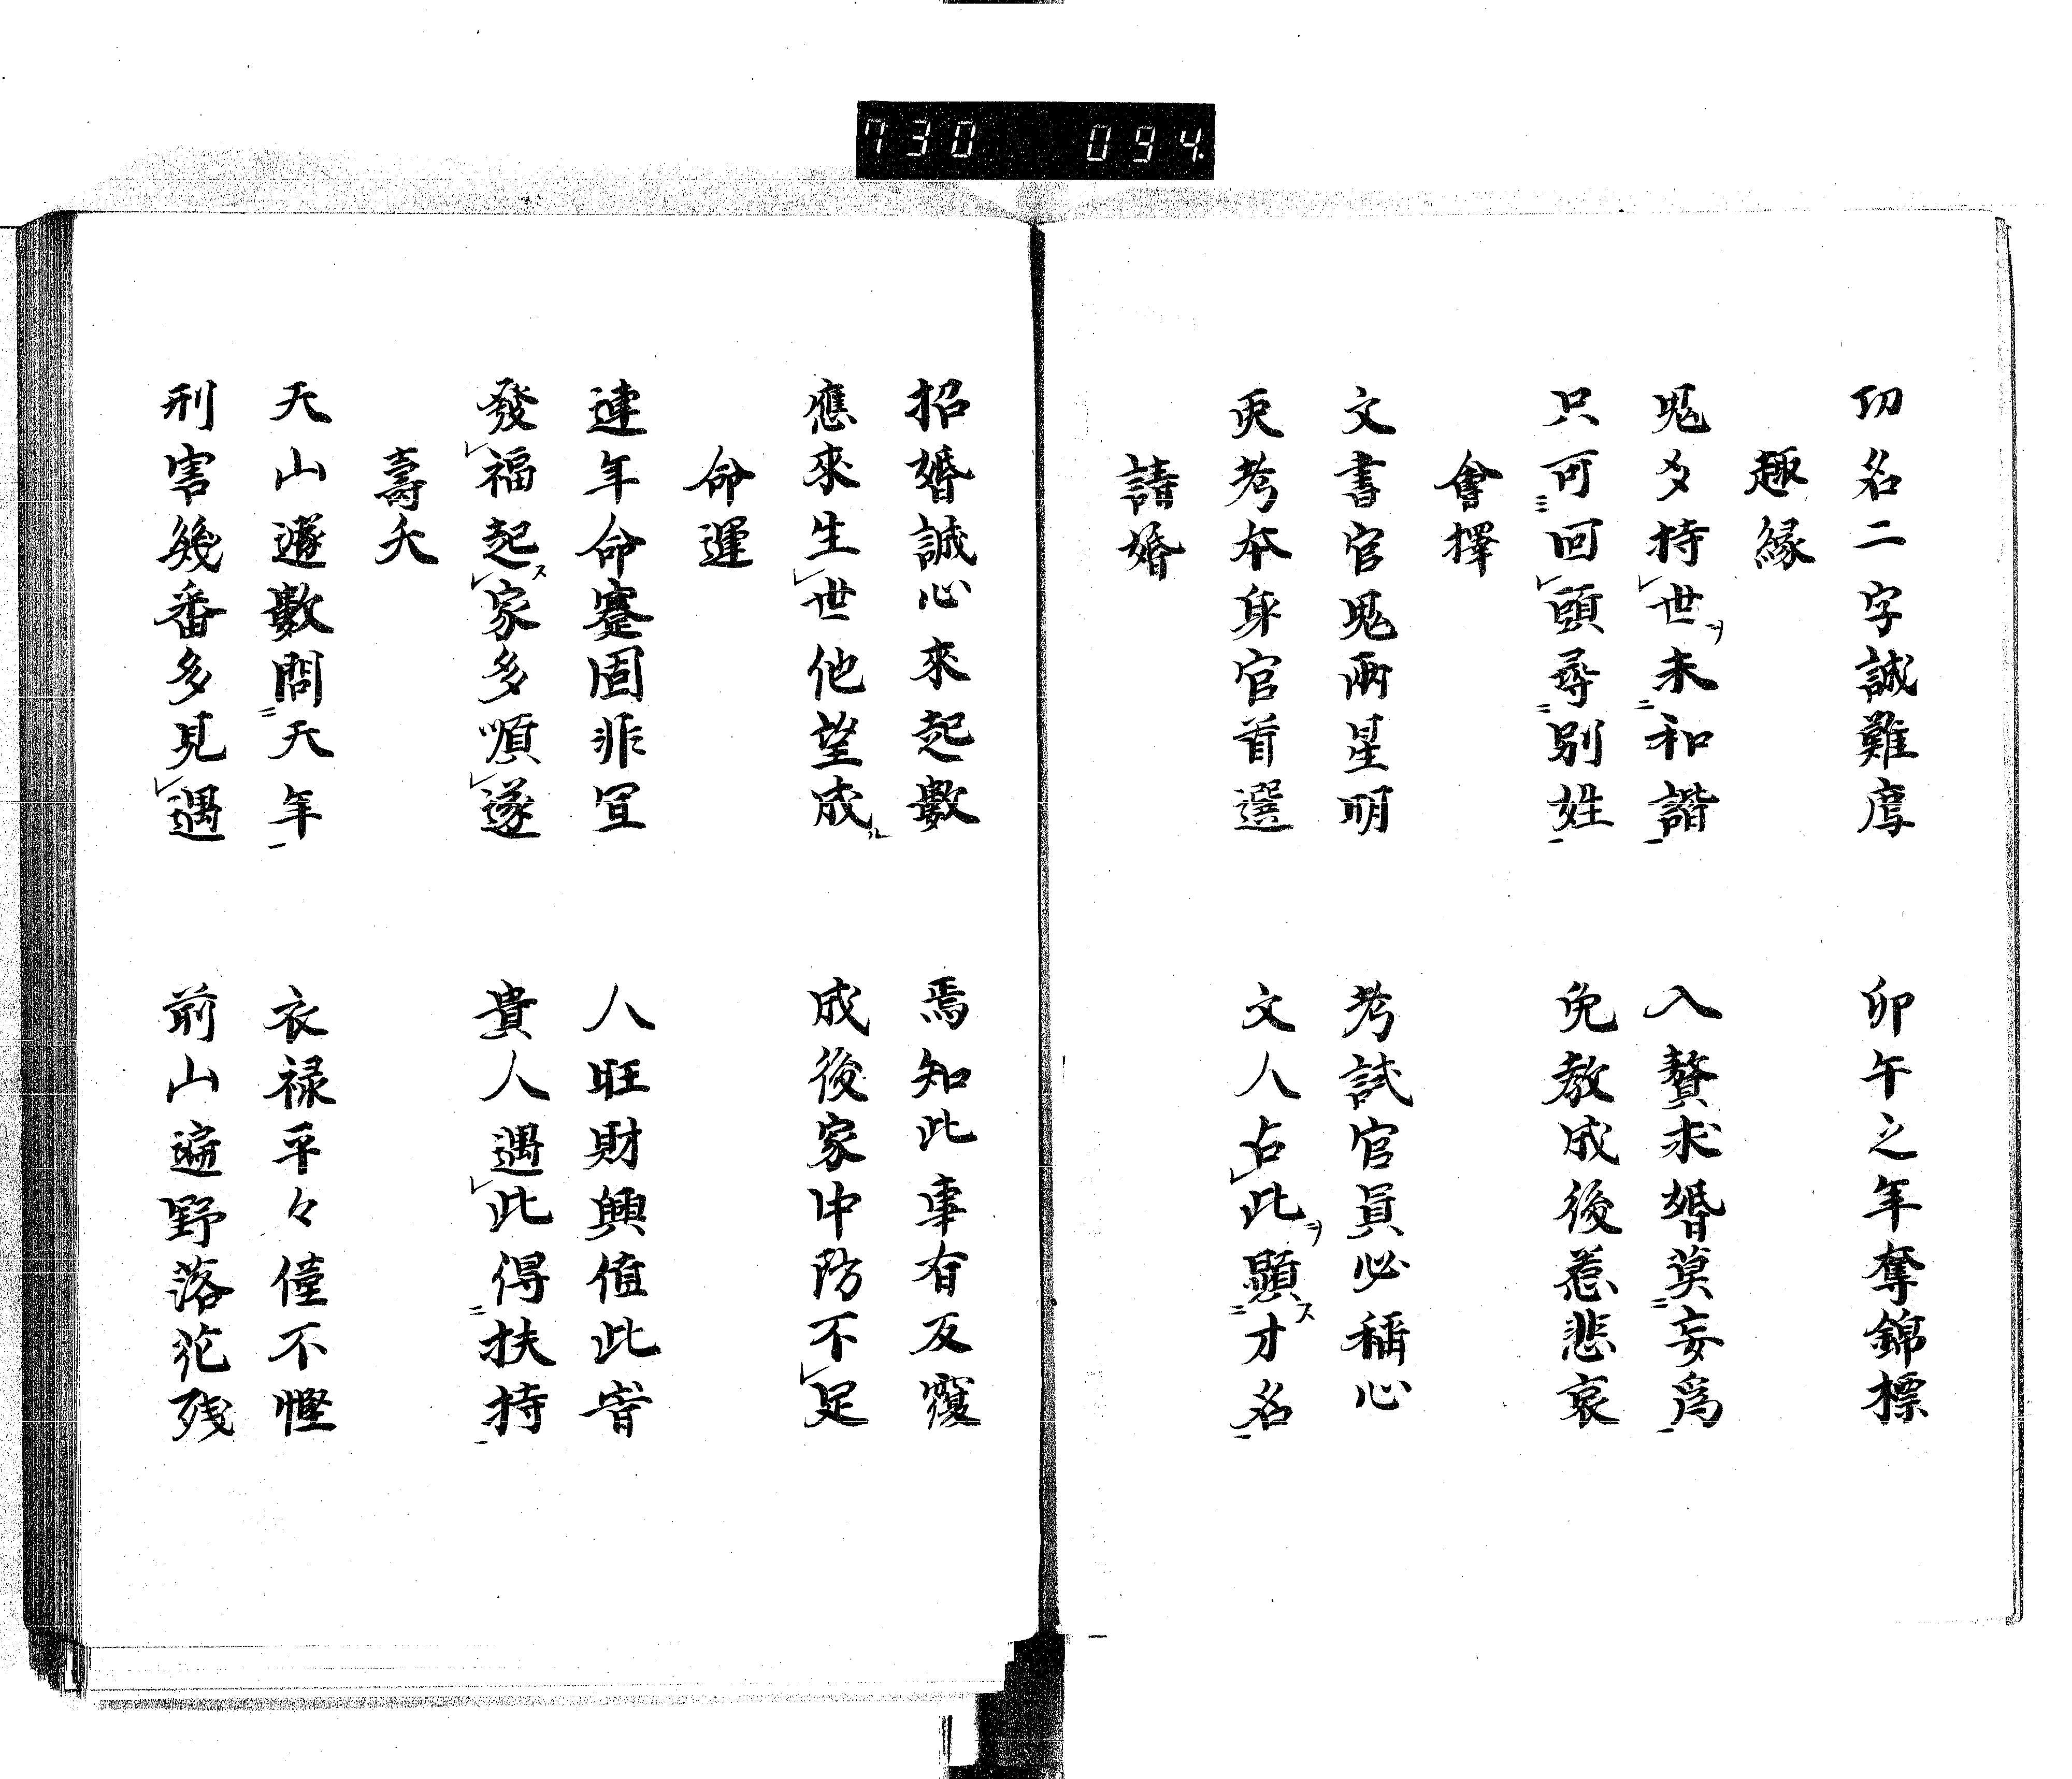 730 094
功名二字誠難厚 卯午之年奪錦標
趣縁
鬼爻持世ヲ未和諧 入贅求婚莫妄為
只可回頭尋別姓 免教成後惹悲哀
會擇
文書官鬼兩星明 考試官員必稱心
更考本身官首選 文人占此ヲ顕ス才名
請婚
招婚誠心來起數 焉知此事有反覆
應來生世他望成ル 成後家中防不足
命運
連年命蹇固非宜 人旺財興值此時
發福起ス家多順遂 貴人遇此得扶持
壽夭
天山遯數問天年 衣禄平々僅不慳
刑害幾番多見遇 前山遍野落花残